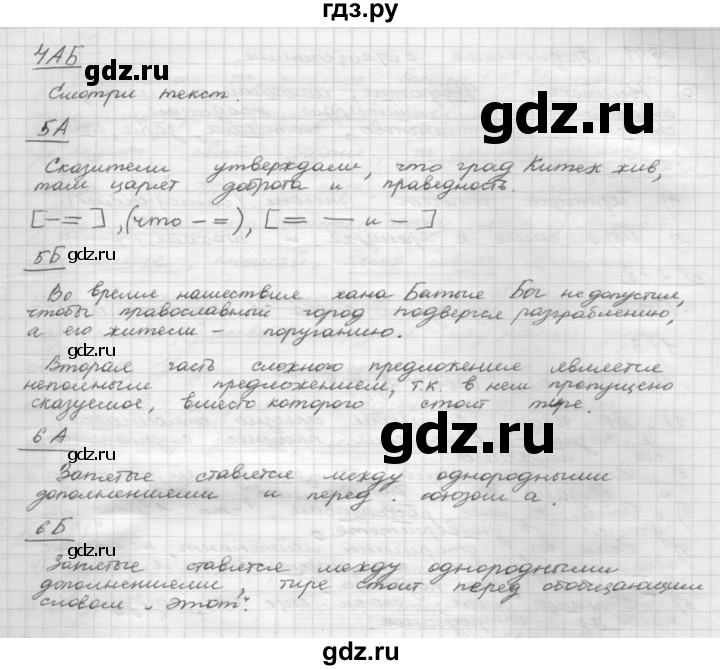 гдз.ру
4АБ
Смотри текст.
gdz.ru
5А
gdz.ru
Сказители утверждали, что град Китеж жив,
там царят доброта и праведность.
[- =], (что - =), [= — и -]
5Б
gdz.ru
Во время нашествия хана Батыя Бог не допустил,
чтобы православный город подвергся разграблению,
а его жители – поруганию.
gdz.ru
Вторая часть сложного предложения является
неполным предложением, т.к. в нем пропущено
сказуемое, вместо которого стоит тире.
gdz.ru
6А
gdz.ru
Запятые ставятся между однородными
дополнениями и перед союзом а.
6Б
gdz.ru
Запятые ставятся между однородными
дополнениями, тире стоит перед обобщающим
словом „этот".
gdz.ru
gdz.ru